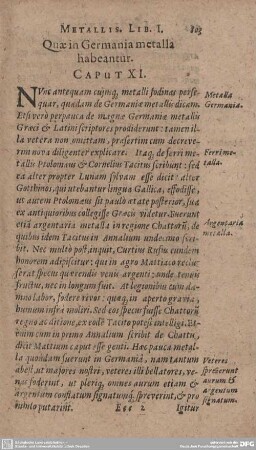 METALLIS. LIB. I.
Quæ in Germania metalla
habeantur.
CAPUT XI.
NUnc antequam cujusq; metalli fodinas perse-
quar, quædam de Germaniæ metallis dicam.
Etsi verò perpauca de magnæ Germaniæ metallis
Græci & Latini scriptores prodiderunt: tamen il-
la vetera non omittam, præsertim cum decreve-
rim diligenter explicare. Itaq; de ferri me-
tallis Ptolomæus & Cornelius Tacitus scribunt: sed
ea alter propter Lunam sylvam esse dicit: alter
Gotthinos, qui utebantur lingua Gallica, effodisse,
ut autem Ptolomæum sit paulò ætate posterior, sua
ex antiquioribus collegisse Græcis videtur. Fuerunt
etiã argentaria metalla in regione Chattorũ, de
quibus idem Tacitus in Annalium undecimo scri-
bit. Nec multò post
inquit, Curtius Rufus eundem
honorem adipiscitur: qui in agro Mattiaco reclu-
serat specus quærendis venis argenti: unde tenuis
fructus, nec in longum fuit. At legionibus cum da-
mno labor, fodere rivos: quæq; in aperto gravia,
humum infra moliri. Sed eos specus fuisse Chattorũ
regno ac ditione, ex eodẽ Tacito potest intelligi. Et-
enim cum in primo Annalium scribit de Chattis,
dicit Mattium caput isse genti. Hæc pauca metal-
la quondam fuerunt in Germaniâ, nam tantum
abest, ut majores nostri, veteres illi bellatores, ve-
nas foderint, ut pleriq; omnes aurum etiam &
argentum conflatum signatumq; spreverint, & pro
nihilo putarint.
Eee 2
Igitur
Metalla
Germaniæ.
Ferri me-
talla.
Argentaria
metalla.
Veteres
spreverunt
aurum &
argentum
signatum.